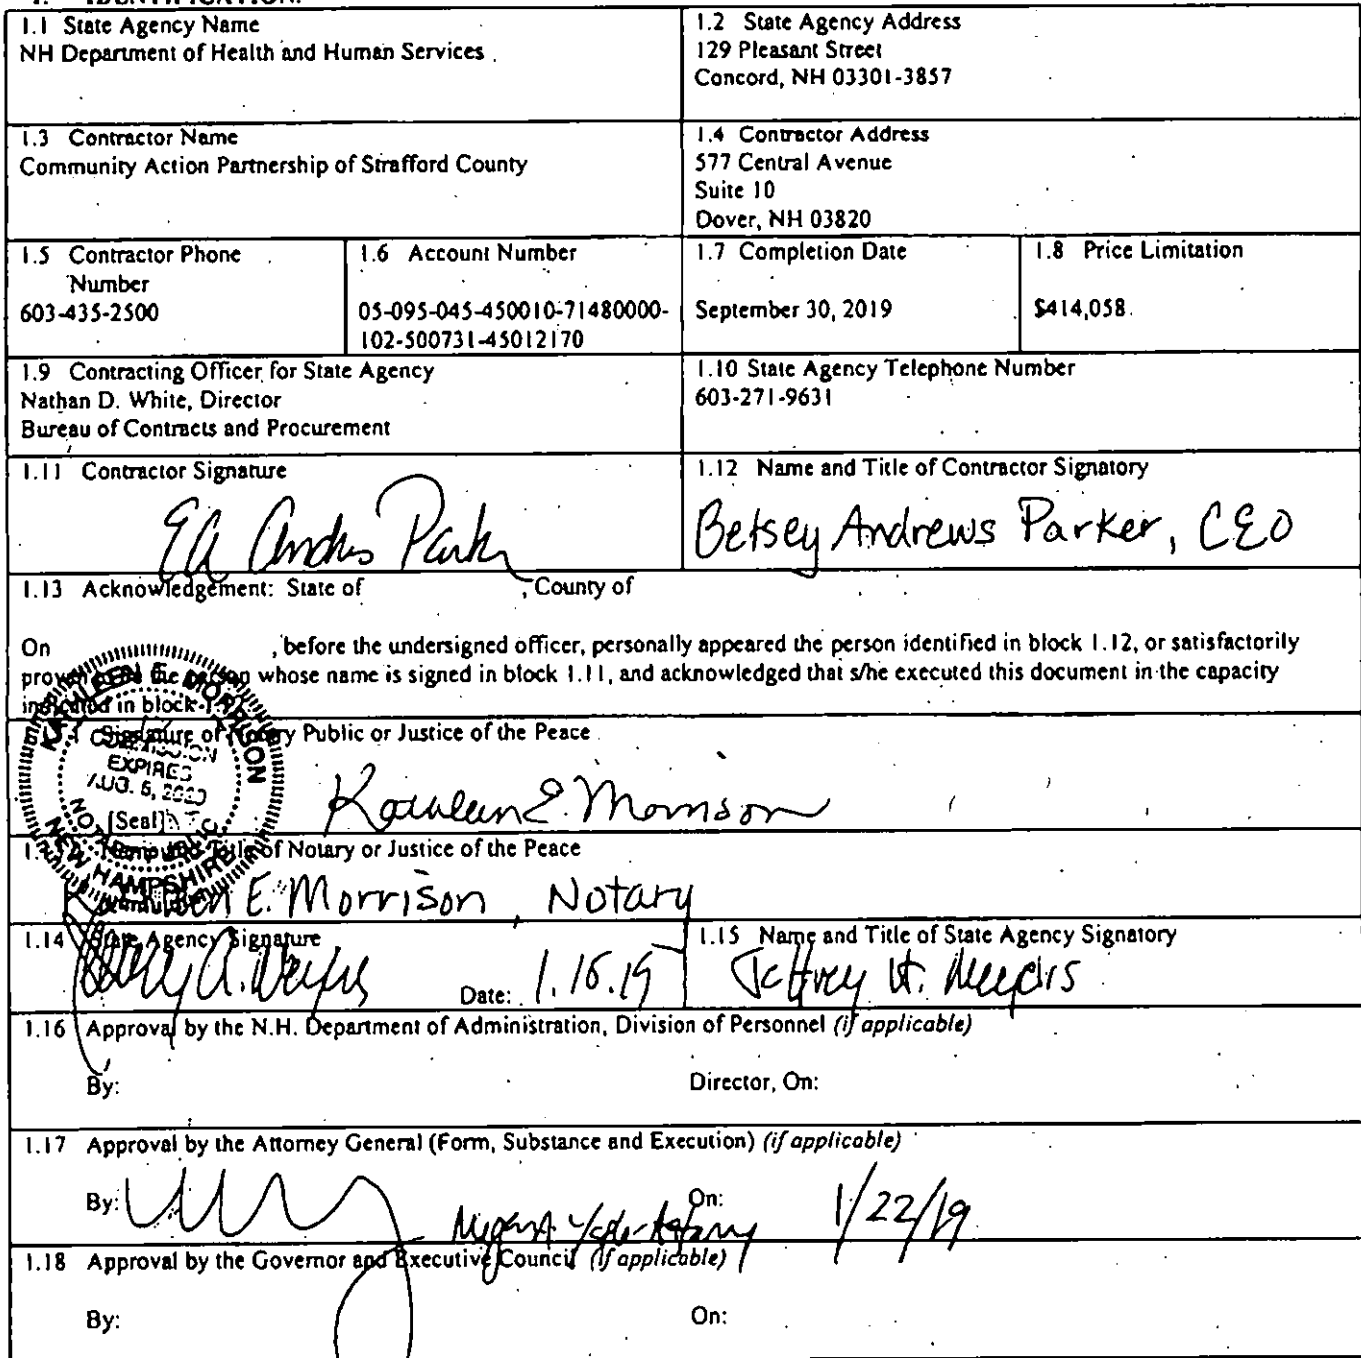 1. IDENTIFICATION.
1.1 State Agency Name
NH Department of Health and Human Services
1.2 State Agency Address
129 Pleasant Street
Concord, NH 03301-3857
1.3 Contractor Name
Community Action Partnership of Strafford County
1.4 Contractor Address
577 Central Avenue
Suite 10
Dover, NH 03820
1.5 Contractor Phone
Number
603-435-2500
1.6 Account Number
05-095-045-450010-71480000-
102-500731-45012170
1.7 Completion Date
September 30, 2019
1.8 Price Limitation
$414,058.
1.9 Contracting Officer for State Agency
Nathan D. White, Director
Bureau of Contracts and Procurement
1.10 State Agency Telephone Number
603-271-9631
1.11 Contractor Signature
EA Andrews Parker
1.12 Name and Title of Contractor Signatory
Betsey Andrews Parker, CEO
1.13 Acknowledgement: State of , County of
On , before the undersigned officer, personally appeared the person identified in block 1.12, or satisfactorily
proven to be the person whose name is signed in block 1.11, and acknowledged that s/he executed this document in the capacity
indicated in block 1.12.
Signature of Notary Public or Justice of the Peace
KATHLEEN E. MORRISON
COMMISSION
EXPIRES
AUG. 5, 2020
[Seal]
NOTARY PUBLIC
NEW HAMPSHIRE
Kathleen E. Morrison
Name and Title of Notary or Justice of the Peace
Kathleen E. Morrison, Notary
1.14 State Agency Signature
Date: 1.15.19
1.15 Name and Title of State Agency Signatory
Jeffrey A. Meyers
1.16 Approval by the N.H. Department of Administration, Division of Personnel (if applicable)
By: Director, On:
1.17 Approval by the Attorney General (Form, Substance and Execution) (if applicable)
By: On: 1/22/19
1.18 Approval by the Governor and Executive Council (if applicable)
By: On: